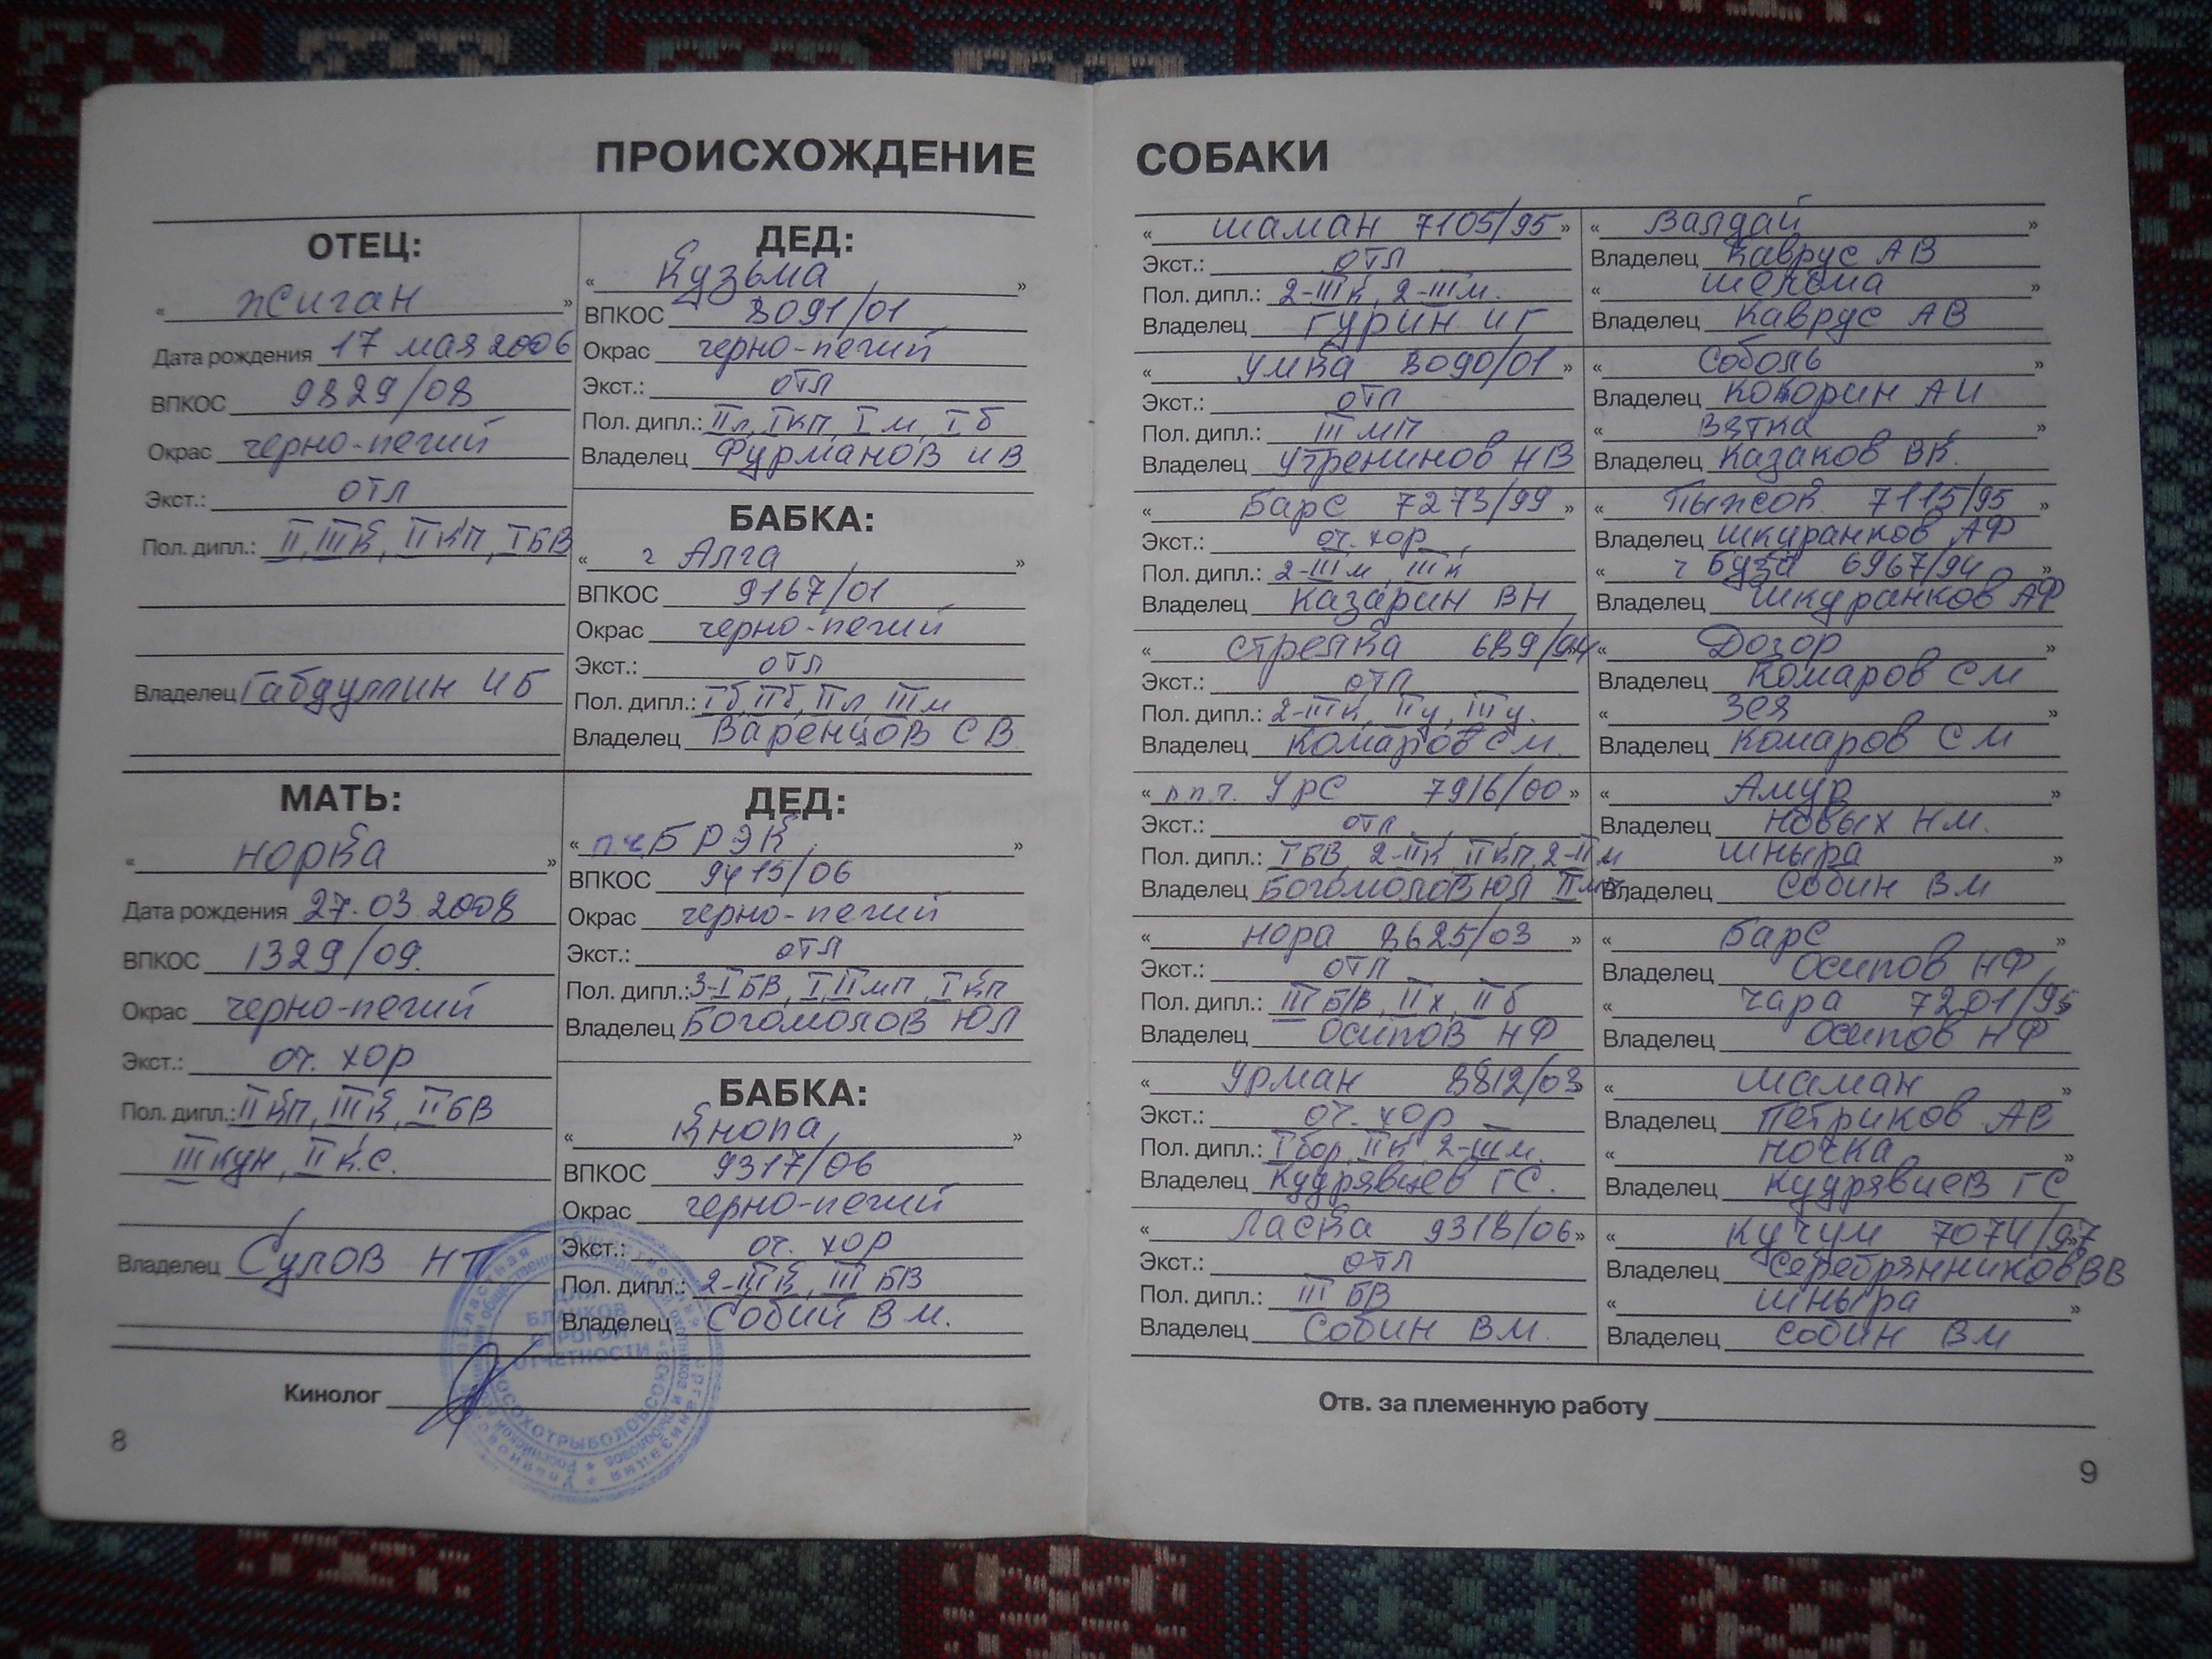 ПРОИСХОЖДЕНИЕ
ОТЕЦ:
« Жиган »
Дата рождения 17 мая 2006
ВПКОС 9829/08
Окрас черно-пегий
Экст.: отл
Пол. дипл.: II, IIIК, IIКП, IБВ
Владелец Габдуллин ИБ
ДЕД:
« Кузьма »
ВПКОС 8091/01
Окрас черно-пегий
Экст.: отл
Пол. дипл.: IIл, Iкп, Iм, Iб
Владелец Фурманов ИВ
БАБКА:
« ч Алга »
ВПКОС 9167/01
Окрас черно-пегий
Экст.: отл
Пол. дипл.: Iб, IIб, IIл, IIIм
Владелец Варенцов С В
МАТЬ:
« Норка »
Дата рождения 27.03.2008
ВПКОС 1329/09.
Окрас черно-пегий
Экст.: оч. хор
Пол. дипл.: IIКП, IIIК, IIБВ
IIIкун, IIк.с.
Владелец Сулов НП
ДЕД:
« п.ч. БРЭК »
ВПКОС 9415/06
Окрас черно-пегий
Экст.: отл
Пол. дипл.: 3-IБВ, I, IIмп, Iкп
Владелец Богомолов ЮЛ
БАБКА:
« Кнопа »
ВПКОС 9317/06
Окрас черно-пегий
Экст.: оч. хор
Пол. дипл.: 2-IIIК, III БВ
Владелец Собий В м.
Кинолог
ДЛЯ
БЛАНКОВ
СТРОГОЙ
ОТЧЕТНОСТИ
8
СОБАКИ
« Шаман 7105/95 »
Экст.: отл
Пол. дипл.: 2-IIIк, 2-IIIм.
Владелец Гурин ИГ
« Умка 8090/01 »
Экст.: отл
Пол. дипл.: III мп
Владелец Угренинов НВ
« Барс 7273/99 »
Экст.: оч. хор
Пол. дипл.: 2-IIIм, IIIк
Владелец Казарин ВН
« Стрелка 689/94 »
Экст.: отл
Пол. дипл.: 2-IIIк, IIу, IIIу.
Владелец Комаров См.
« п.п.ч. Урс 7916/00 »
Экст.: отл
Пол. дипл.: IБВ, 2-IIк, IIкп, 2-IIм
Владелец Богомолов ЮЛ
« Нора 8625/03 »
Экст.: отл
Пол. дипл.: III Б/В, IIх, IIб
Владелец Осипов НФ
« Урман 8812/03 »
Экст.: оч. хор
Пол. дипл.: Iбор, IIк, 2-IIIм.
Владелец Кудрявцев ГС.
« Ласка 9318/06 »
Экст.: отл
Пол. дипл.: III БВ
Владелец Собин ВМ.
« Валдай »
Владелец Каврус АВ
« Шельма »
Владелец Каврус АВ
« Соболь »
Владелец Кокорин АИ
« Вятка »
Владелец Казаков ВК.
« Пыжок 7115/95 »
Владелец Шкуранков АФ
« ч Буза 6967/94 »
Владелец Шкуранков АФ
« Дозор »
Владелец Комаров См
« Зея »
Владелец Комаров С м
« Амур »
Владелец Новых Нм.
Шныра »
Владелец Собин ВМ
« Барс »
Владелец Осипов НФ
« Чара 7201/95
Владелец Осипов НФ
« Шаман »
Владелец Петриков АВ
« Ночка »
Владелец Кудрявцев ГС
« Кучум 7074/97
Владелец Серебрянников ВВ
« Шныра »
Владелец Собин ВМ
Отв. за племенную работу
9